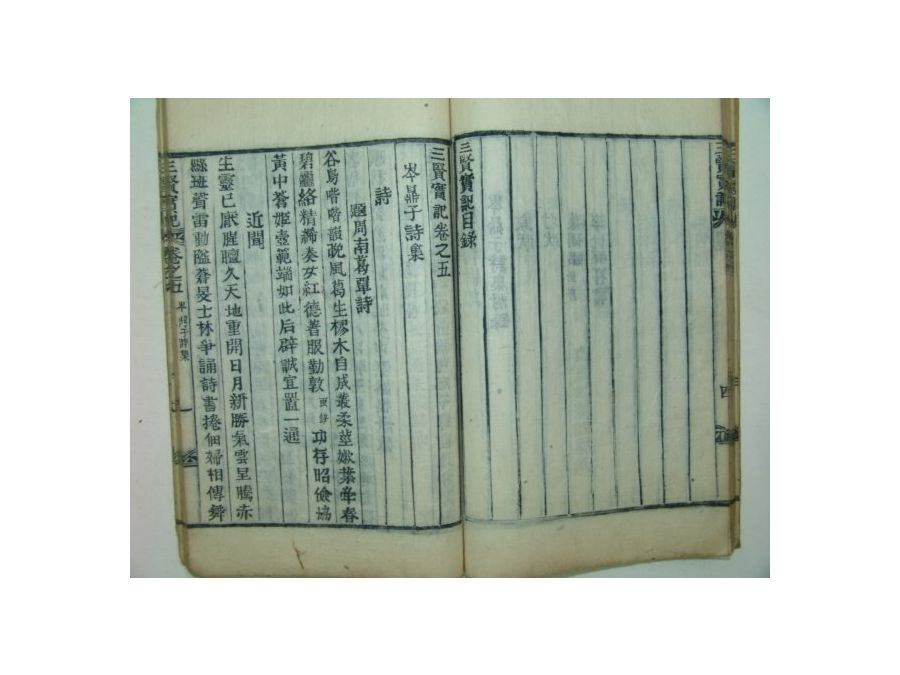 三賢實記
四
三賢實記目錄
三賢實記卷之五
岑鼎子詩集
詩
題周南葛覃詩
谷鳥喈喈韻晚風葛生樛木自成叢柔莖嫩葉牽春
碧纖絡精絺奏女紅德著服勤敦功存昭儉協
黃中蒼姬壼範端如此后辟誠宜置一通
近聞
生靈已厭腥膻久天地重開日月新勝氣雲呈騰赤
縣班菁雷動蹌蒼旻士林爭誦詩書捲佃婦相傳舞
三賢實記卷之五